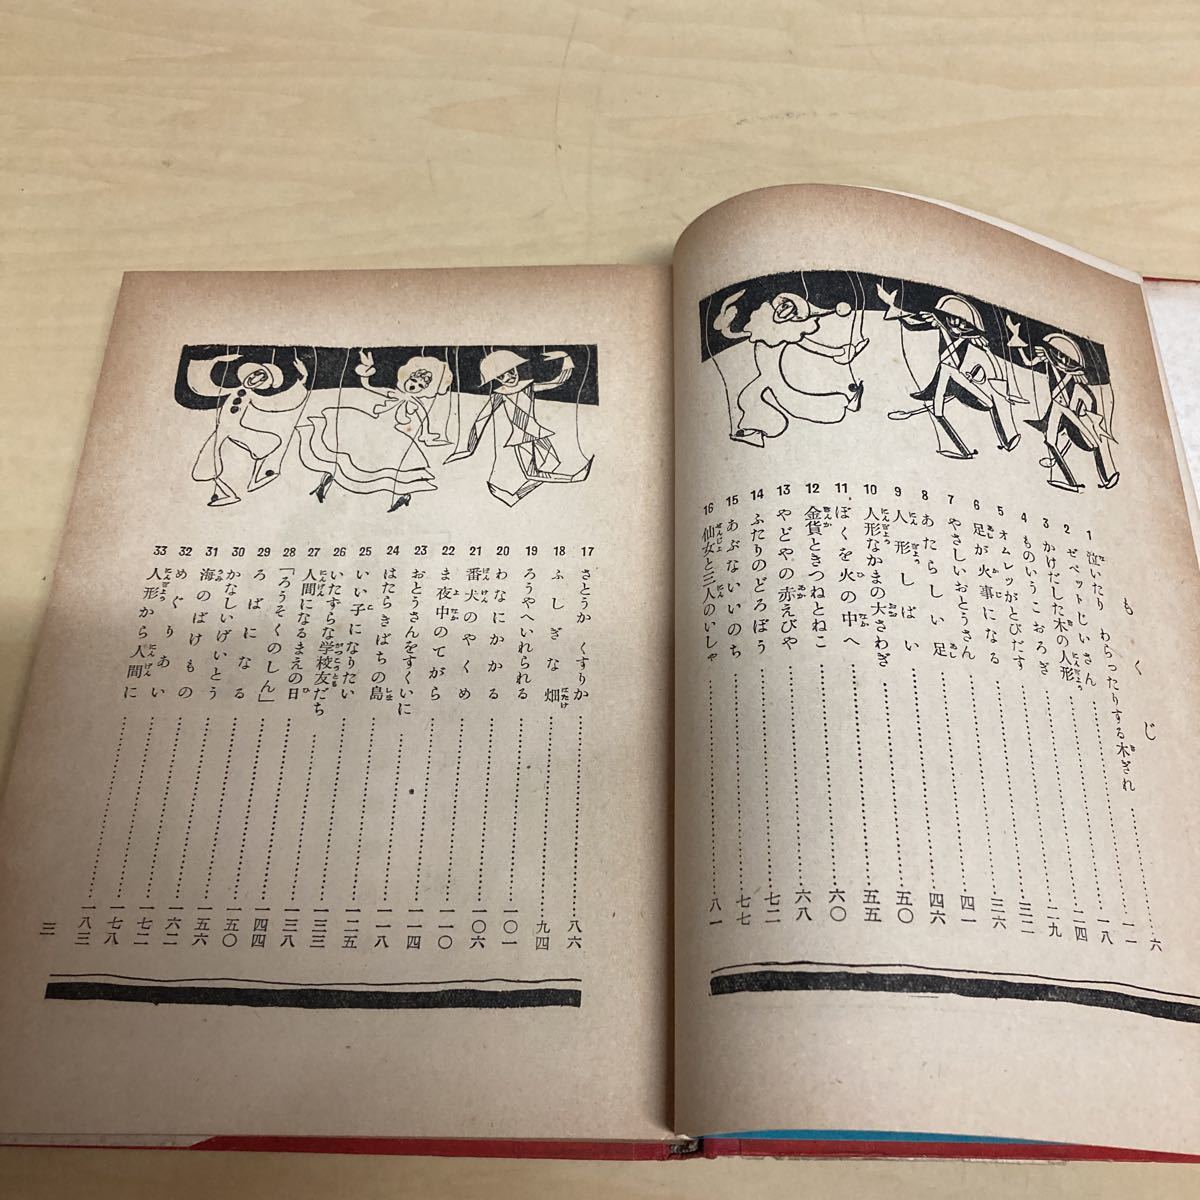 もくじ
1 泣いたり わらったりする木ぎれ……六
2 ゼペットじいさん……一一
3 かけだした木の人形……一八
4 ものいうこおろぎ……二四
5 オムレツがとびだす……二九
6 足が火事になる……三二
7 やさしいおとうさん……三六
8 あたらしい足……四一
9 人形しばい……四六
10 人形なかまの大さわぎ……五〇
11 ぼくを火の中へ……五五
12 金貨ときつねとねこ……六〇
13 やどやの赤えびや……六八
14 ふたりのどろぼう……七二
15 あぶないいのち……七七
16 仙女と三人のいしゃ……八一
17 さとうか くすりか……八六
18 ふしぎな畑……九四
19 ろうやへいれられる……一〇一
20 わなにかかる……一〇六
21 番犬のやくめ……一一〇
22 ま夜中のてがら……一一四
23 おとうさんをすくいに……一一八
24 はたらきばちの島……一二五
25 いい子になりたい……一三三
26 いたずらな学校友だち……一三八
27 人間になるまえの日……一四四
28 「ろうそくのしん」……一五〇
29 ろばになる……一五六
30 かなしいげいとう……一六二
31 海のばけもの……一七二
32 めぐりあい……一七八
33 人形から人間に……一八三
三